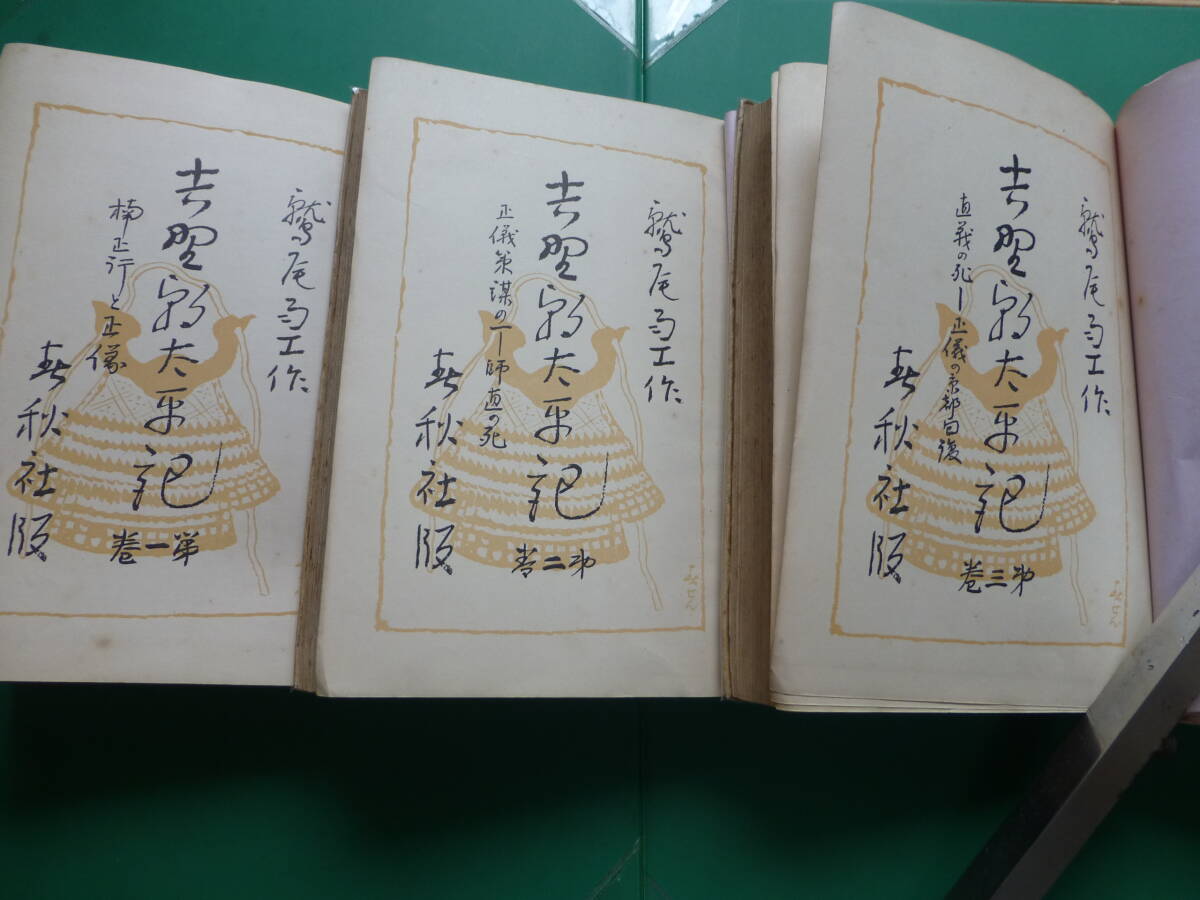 鷲尾雨工作
吉野朝太平記
第一巻
楠正行と正儀
春秋社版
鷲尾雨工作
吉野朝太平記
第二巻
正儀策謀の一ー師直の死
春秋社版
鷲尾雨工作
吉野朝太平記
第三巻
直義の死ー正儀の京都回復
春秋社版